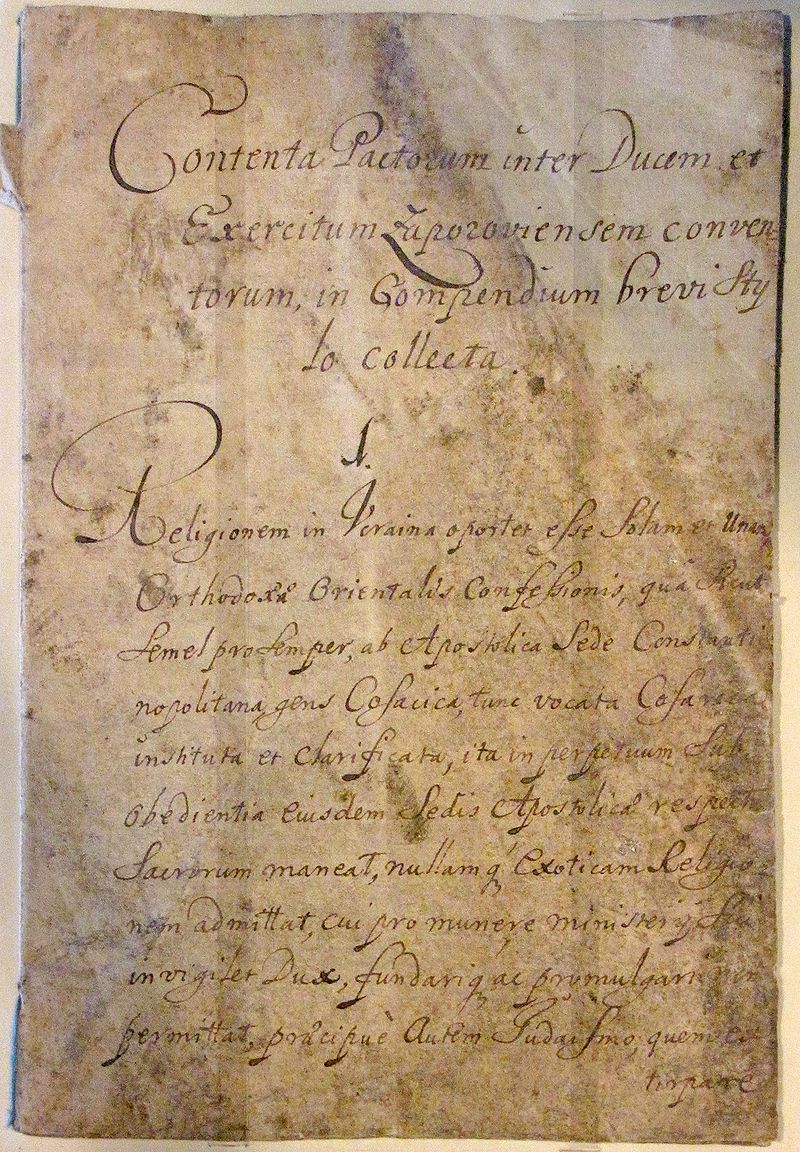 Contenta Pactorum inter Ducem et
Exercitum Zaporoviensem conven
torum, in Compendium brevi Sty
lo collecta.
1.
Religionem in Vcraina oportet esse Solam et Unam
Orthodoxæ Orientalis Confessionis, quâ Sicut
Semel pro Semper, ab Apostolica Sede Constanti
nopolitana gens Cosacica, tunc vocata
instituta et Clarificata, ita in perpetuum Sub
obedientia eiusdem Sedis Apostolicæ respectu
Sacrorum maneat, nullamq́ Exoticam Religio
nem admittat, cui pro munere ministerij Sui
invigilet Dux, fundariq́ ac promulgari non
permittat, præcipuè Autem Judaismo, quem ex
tirpare